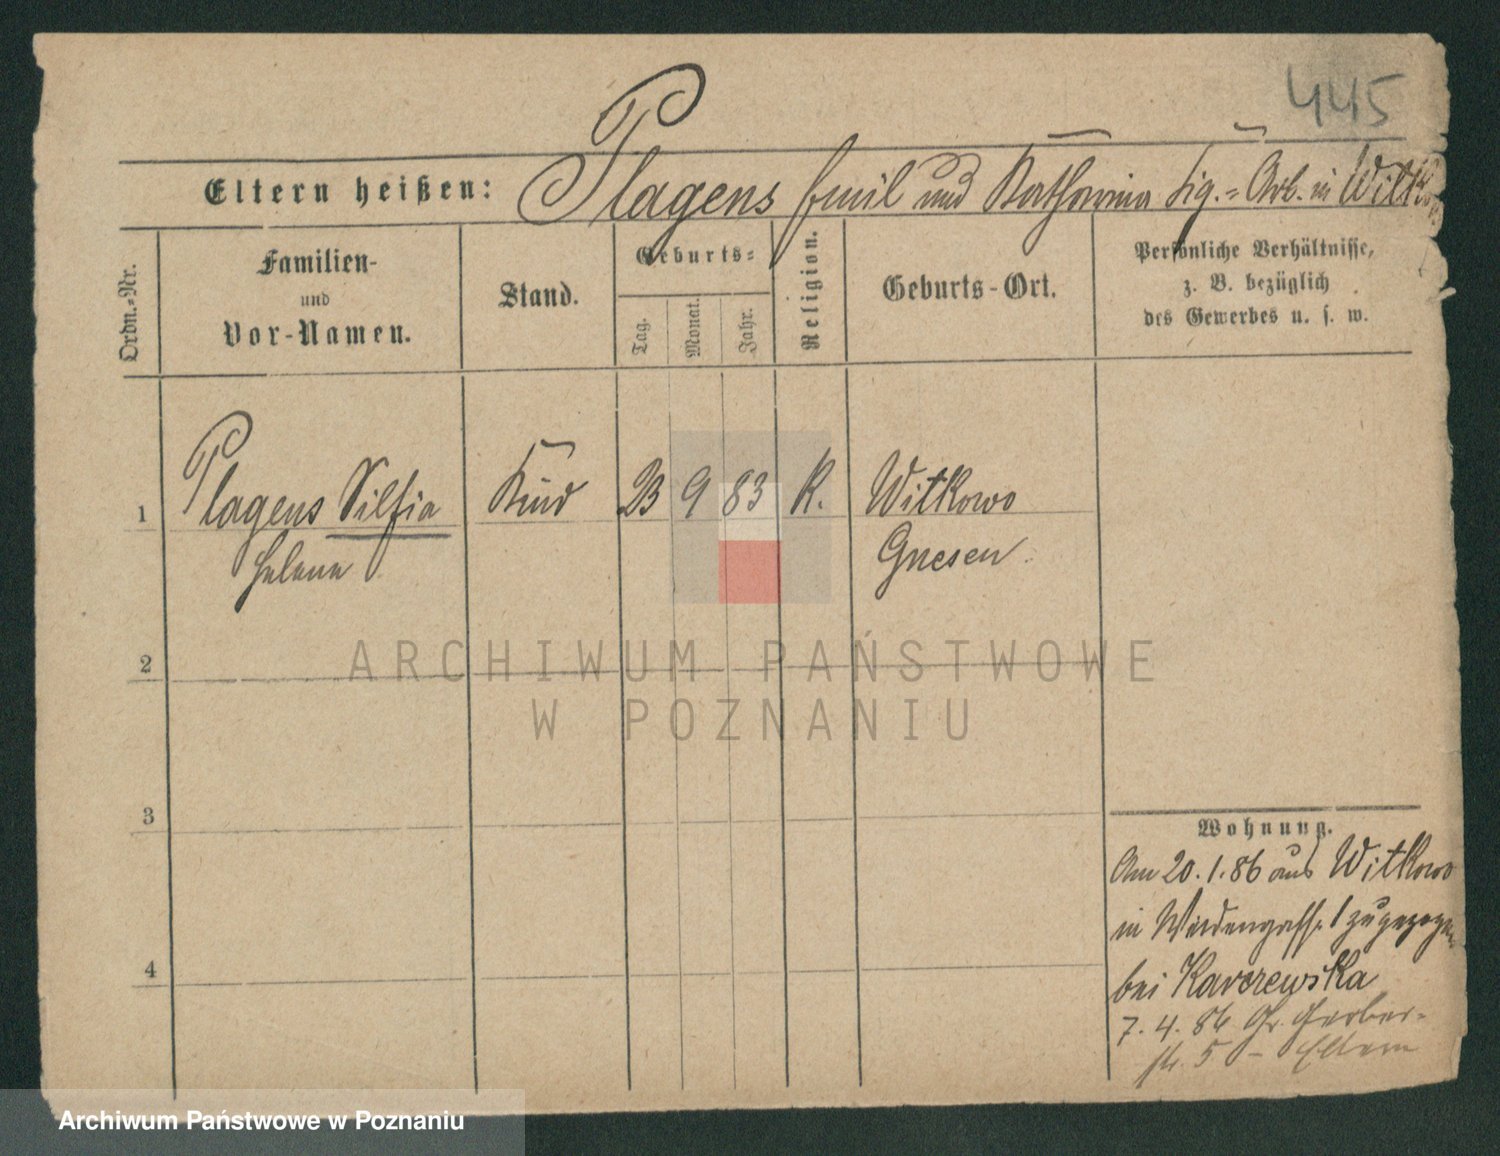 445
Eltern heißen: Plagens Emil und Katharina Zig.=Arb. in Witkowo
Ordn.-Nr.
Familien-
und
Vor-Namen.
Stand.
Geburts-
Tag.
Monat.
Jahr.
Religion.
Geburts-Ort.
Persönliche Verhältnisse,
z. B. bezüglich
des Gewerbes u. s. w.
1 Plagens Silfia Kind 23 9 83 K. Witkowo
Helene Gnesen
2
3
4
Wohnung.
Am 20.1.86 aus Witkowo
in Weidengasse 1 zugezogen
bei Karczewska
7.4.86 Gr. Gerber-
str. 5 - Eltern
ARCHIWUM PAŃSTWOWE
W POZNANIU
Archiwum Państwowe w Poznaniu